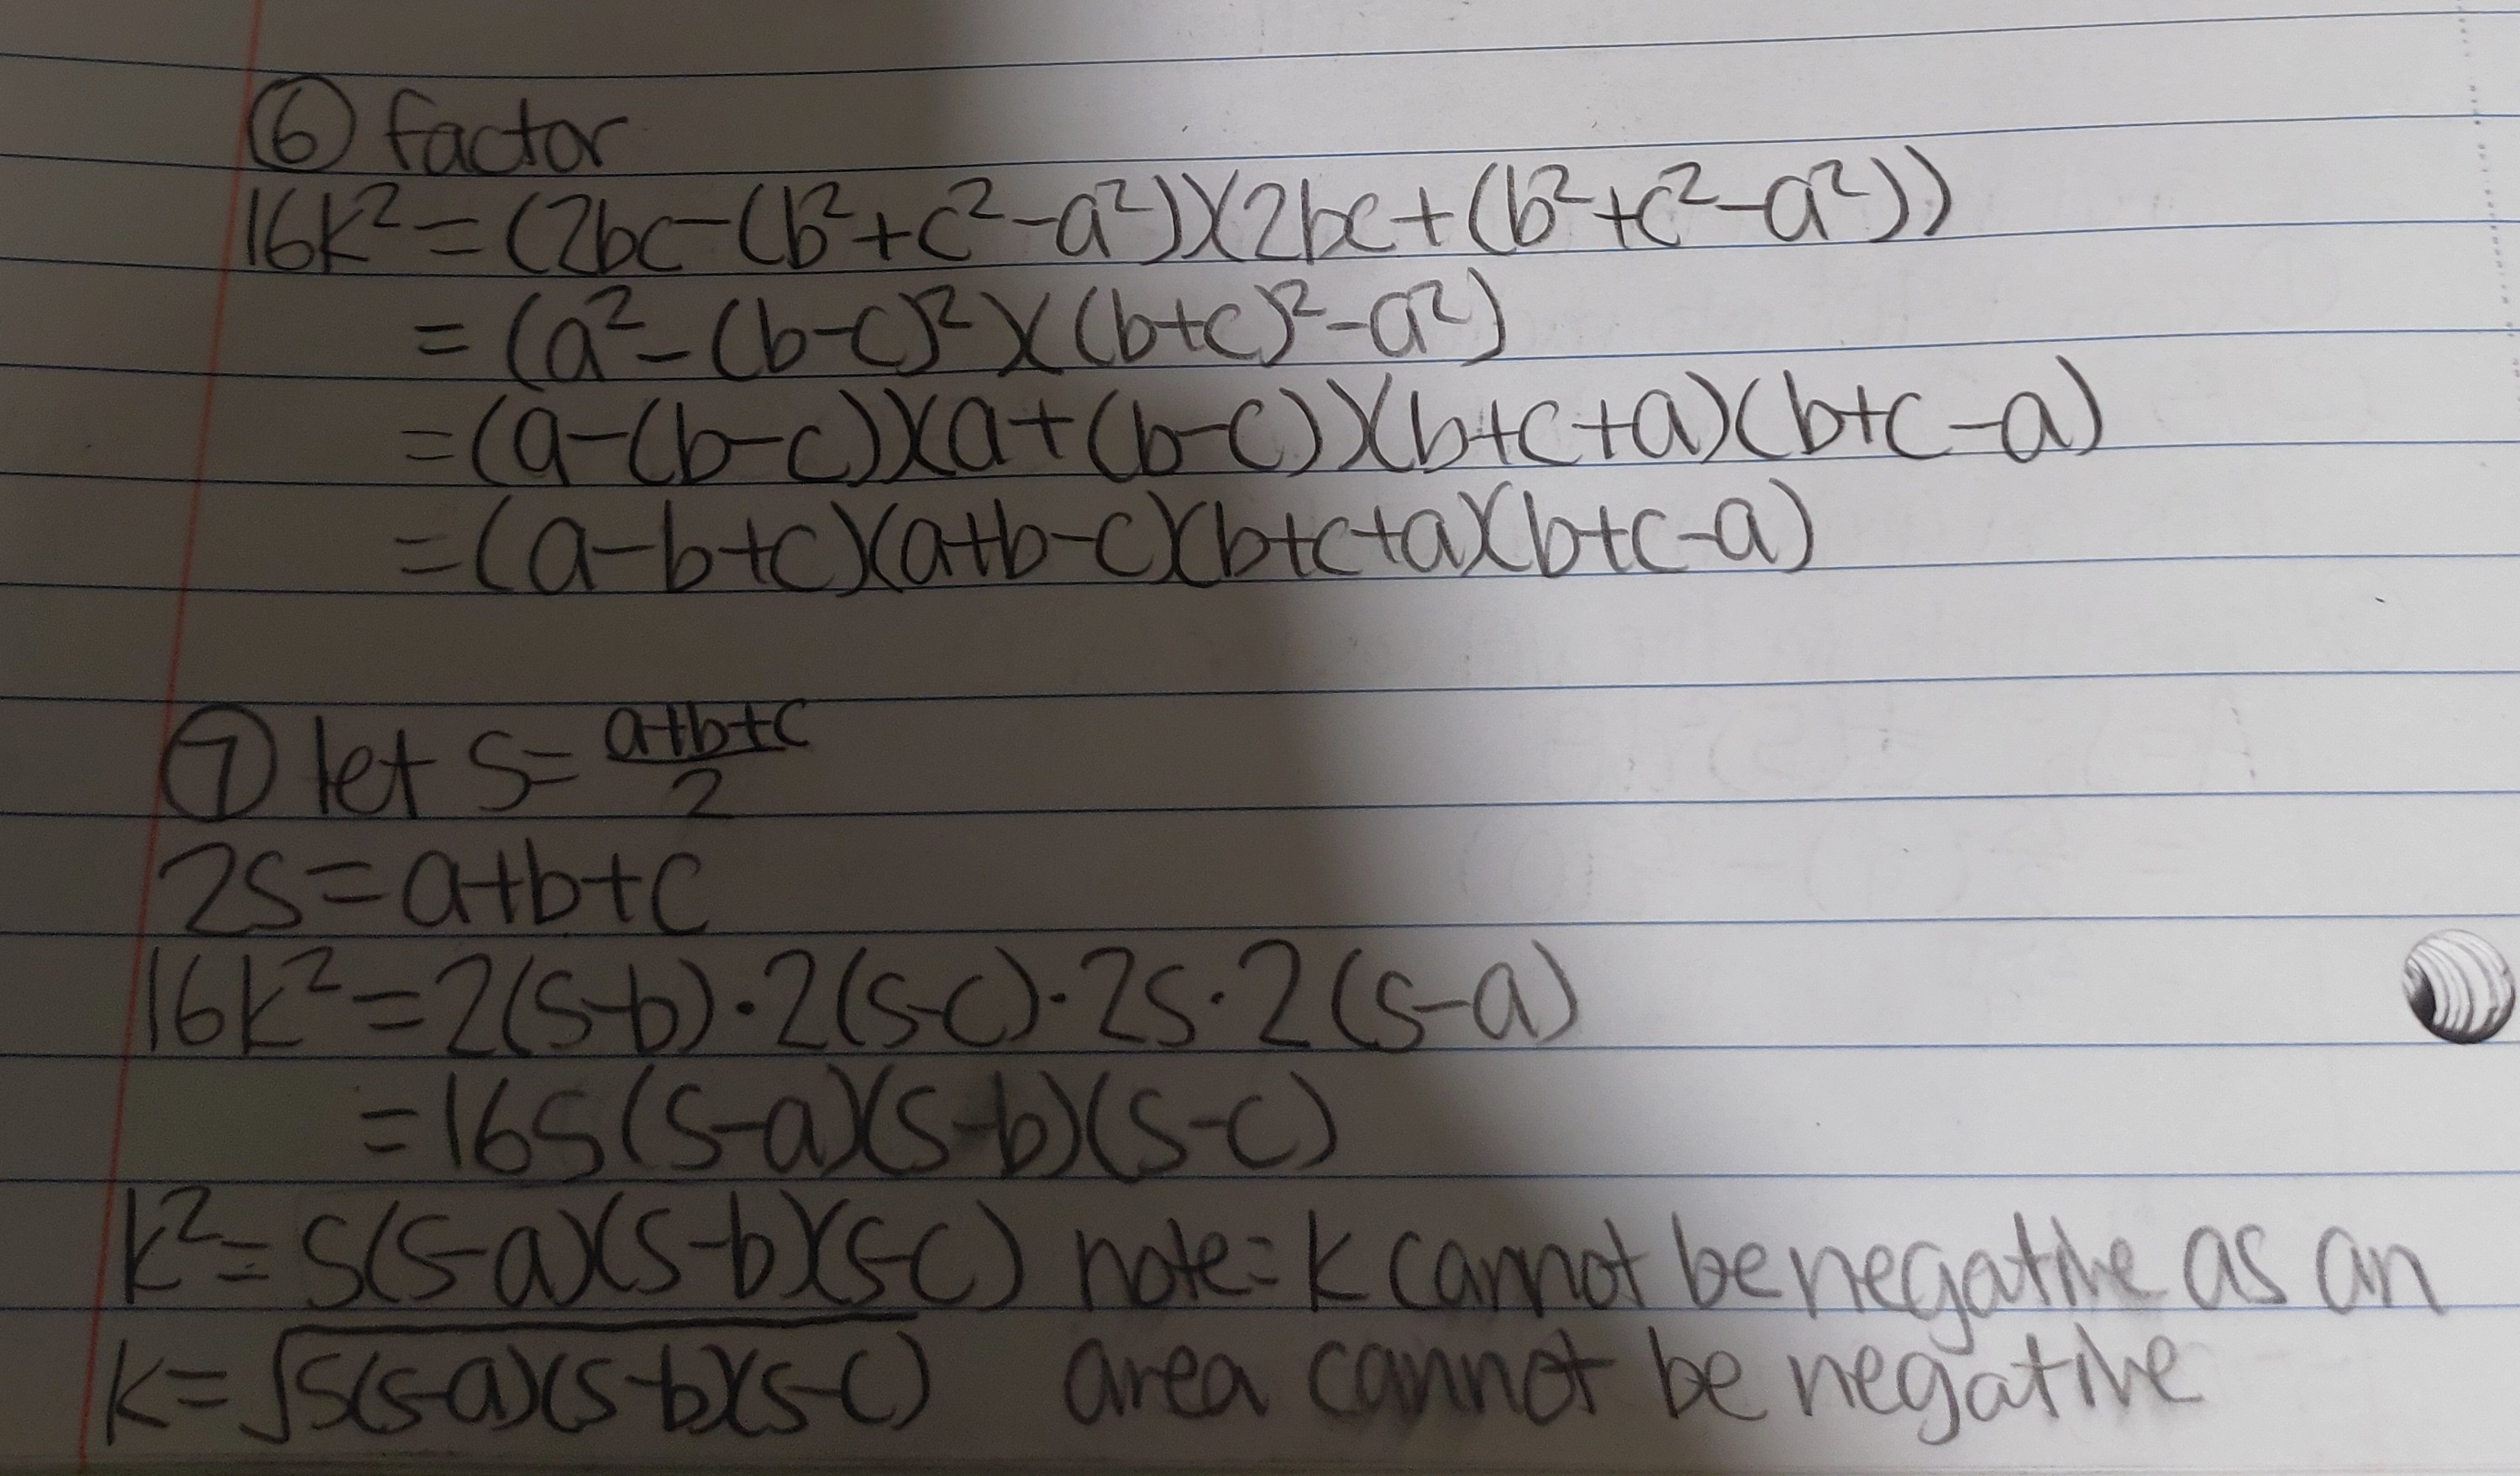 ⑥ factor
16k² = (2bc-(b²+c²-a²))(2bc+(b²+c²-a²))
= (a²-(b-c)²)((b+c)²-a²)
=(a-(b-c))(a+(b-c))(b+c+a)(b+c-a)
=(a-b+c)(a+b-c)(b+c+a)(b+c-a)
⑦ let s= a+b+c/2
2s=a+b+c
16k²=2(s-b)·2(s-c)·2s·2(s-a)
=16s(s-a)(s-b)(s-c)
k²= s(s-a)(s-b)(s-c) note: k cannot be negative as an
k=√s(s-a)(s-b)(s-c) area cannot be negative